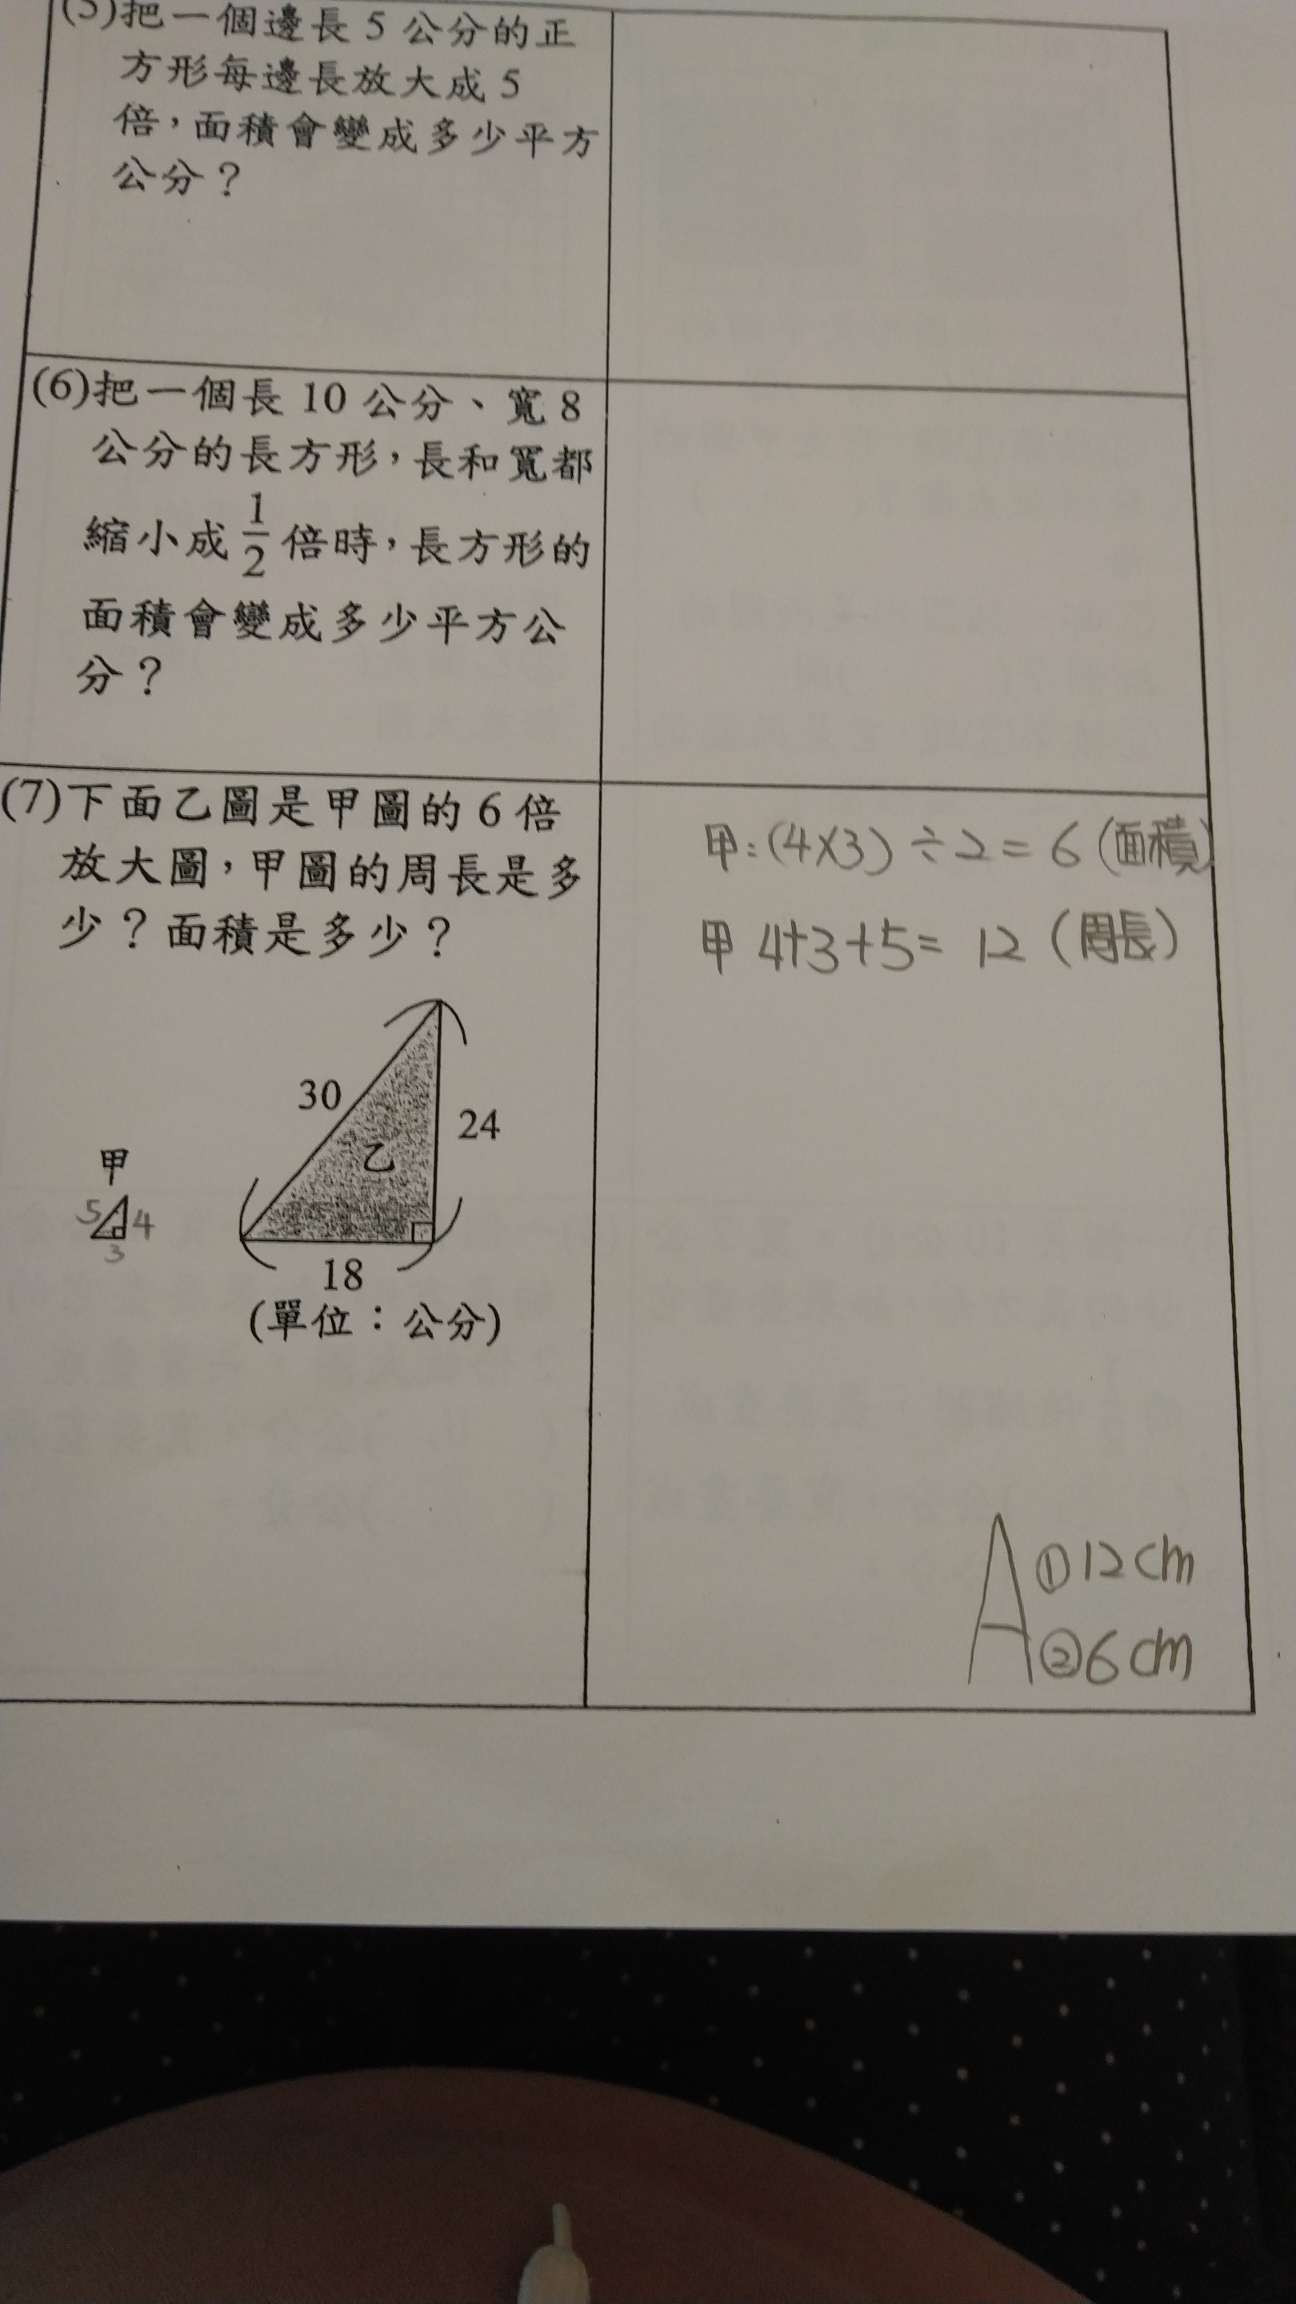 (5)把一個邊長 5 公分的正
方形每邊長放大成 5
倍，面積會變成多少平方
公分？
(6)把一個長 10 公分、寬 8
公分的長方形，長和寬都
縮小成 1/2 倍時，長方形的
面積會變成多少平方公
分？
(7)下面乙圖是甲圖的 6 倍
放大圖，甲圖的周長是多
少？面積是多少？
甲:(4×3)÷2=6(面積)
甲 4+3+5= 12 (周長)
30
24
乙
甲
5
4
3
18
(單位：公分)
A ①12cm
②6cm